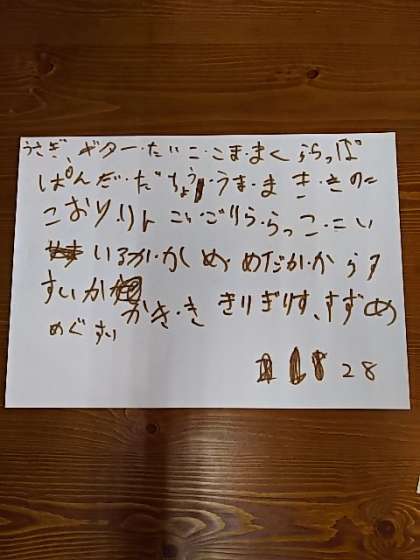 うさぎ、ギター・たいこ・こま・まくららっぱ
ぱんだ・だちょう・うま・まき・きのこ
こおり、りんごりら・らっこ・こい
いるか・かめ・めだか・からす
すいか かき・き きりぎりす、すずめ
めぐすり
28